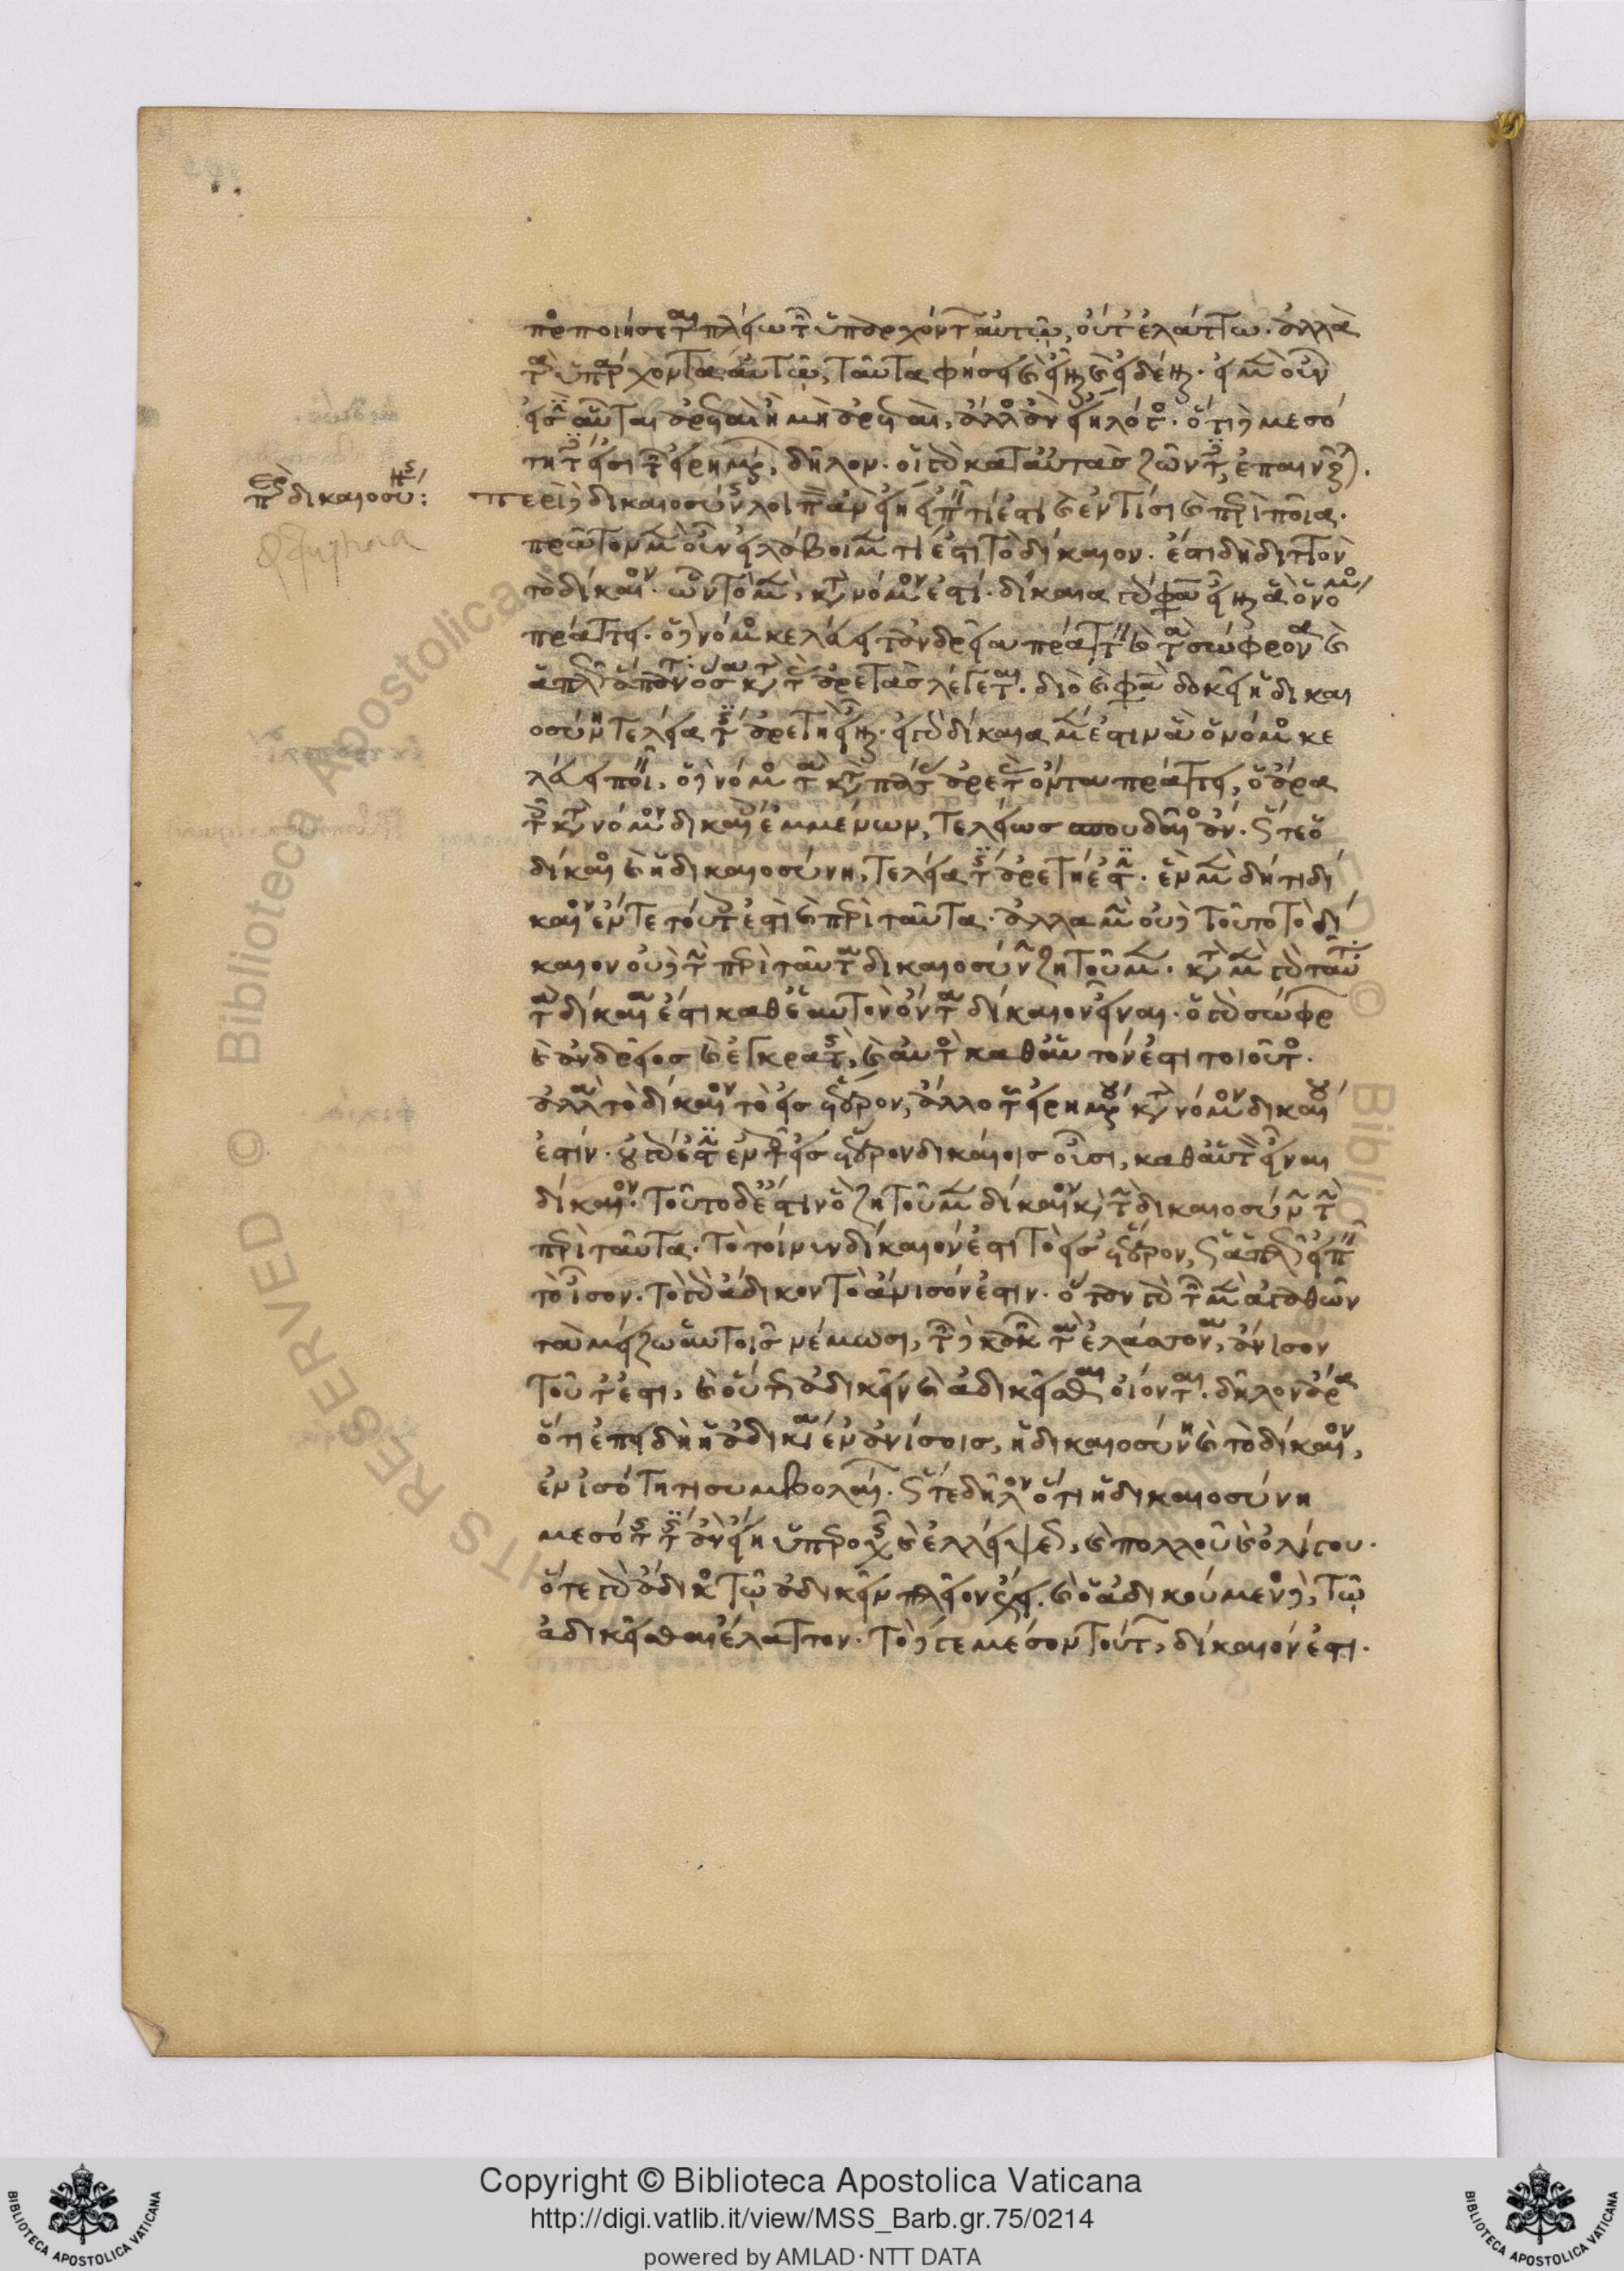 προσποιήσεται πλείω τῶν ὑπαρχόντων αὐτῷ, οὔτ' ἐλάττω. ἀλλὰ
τὰ ὑπάρχοντα αὐτῷ, ταῦτα φήσει καὶ εἶναι καὶ εἰδέναι. εἰ μὲν οὖν
εἰσὶν αὗται ἀρεταὶ ἢ μὴ ἀρεταὶ, ἄλλος ἂν εἴη λόγος. ὅτι δὲ μεσό
τητές εἰσι τῶν εἰρημένων, δῆλον. οἱ γὰρ κατ' αὐτὰς ζῶντες, ἐπαινοῦνται.
περὶ δικαιοσύνης:
περὶ δὲ δικαιοσύνης λοιπὸν ἂν εἴη εἰπεῖν τί ἐστι καὶ ἐν τίσι καὶ περὶ ποῖα.
πρῶτον μὲν οὖν εἰ λάβοιμεν τί ἐστι τὸ δίκαιον. ἔστι δὴ διττὸν
τὸ δίκαιον. ὧν τὸ μὲν, κατὰ νόμον ἐστί. δίκαια γάρ φασιν εἶναι ἃ ὁ νόμος
πράττειν. ὁ δὲ νόμος κελεύει τἀνδρεῖα πράττειν καὶ τὰ σώφρονα καὶ
ἁπλῶς ἅπαντα ὅσα κατὰ τὰς ἀρετὰς λέγεται. διὸ καὶ φασὶ δοκεῖ ἡ δικαι
οσύνη τελεία τις ἀρετὴ εἶναι. εἰ γὰρ δίκαια μέν ἐστιν ἃ ὁ νόμος κε
λεύει ποιεῖν, ὁ δὲ νόμος τὰ κατὰ πάσας ἀρετὰς ὄντα πράττειν, ὁ ἄρα
τοῖς κατὰ νόμον δικαίοις ἐμμένων, τελείως σπουδαῖος ἂν. ὥστε ὁ
δίκαιος καὶ ἡ δικαιοσύνη, τελεία τις ἀρετή ἐστιν. ἓν μὲν δή τι δί
καιον ἔν τε τούτοις ἐστὶ καὶ περὶ ταῦτα. ἀλλὰ μὴν οὐδὲ τοῦτο τὸ δί
καιον οὐδὲ τὴν περὶ ταῦτα δικαιοσύνην ζητοῦμεν. κατὰ μὲν γὰρ ταῦτα
τὰ δίκαια ἔστι καθ' ἑαυτὸν ὄντα δίκαιον εἶναι. ὁ γὰρ σώφρων
καὶ ἀνδρεῖος καὶ ἐγκρατὴς, καὶ αὐτὸς καθ' αὑτόν ἐστι τοιοῦτος.
ἀλλὰ τὸ δίκαιον τὸ εἰς ἕτερον, ἄλλο τοῦ εἰρημένου κατὰ νόμον δικαίου
ἐστίν. οὐ γὰρ ἔστιν ἐν τοῖς εἰς ἕτερον δικαίοις οὖσι, καθ' αὑτὸν εἶναι
δίκαιον. τοῦτο δέ ἐστιν ὃ ζητοῦμεν δίκαιον καὶ τὴν δικαιοσύνην τὴν
περὶ ταῦτα. τὸ τοίνυν δίκαιόν ἐστι τὸ εἰς ἕτερον, ὡς ἁπλῶς εἰπεῖν
τὸ ἴσον. τὸ γὰρ ἄδικον τὸ ἄνισόν ἐστιν. ὅταν γὰρ τῶν μὲν ἀγαθῶν
τὰ μείζω αὑτοῖς νέμωσι, τῶν δὲ κακῶν τὰ ἐλάττονα, ἄνισον
τοῦτ' ἐστι, καὶ οὕτως ἀδικεῖν καὶ ἀδικεῖσθαι οἴονται. δῆλον ἄρα
ὅτι ἐπειδὴ ἡ ἀδικία ἐν ἀνίσοις, ἡ δικαιοσύνη καὶ τὸ δίκαιον,
ἐν ἰσότητι συμβολαίων. ὥστε δῆλον ὅτι ἡ δικαιοσύνη
μεσότης τις ἂν εἴη ὑπεροχῆς καὶ ἐλλείψεως, καὶ πολλοῦ καὶ ὀλίγου.
ὅ τε γὰρ ἄδικος τῷ ἀδικεῖν πλεῖον ἔχει. καὶ ὁ ἀδικούμενος δὲ, τῷ
ἀδικεῖσθαι ἔλαττον. τὸ δέ γε μέσον τούτων, δίκαιόν ἐστι.
RESERVED © Biblioteca Apostolica
Copyright © Biblioteca Apostolica Vaticana
http://digi.vatlib.it/view/MSS_Barb.gr.75/0214
powered by AMLAD·NTT DATA
BIBLIOTECA APOSTOLICA VATICANA
BIBLIOTECA APOSTOLICA VATICANA